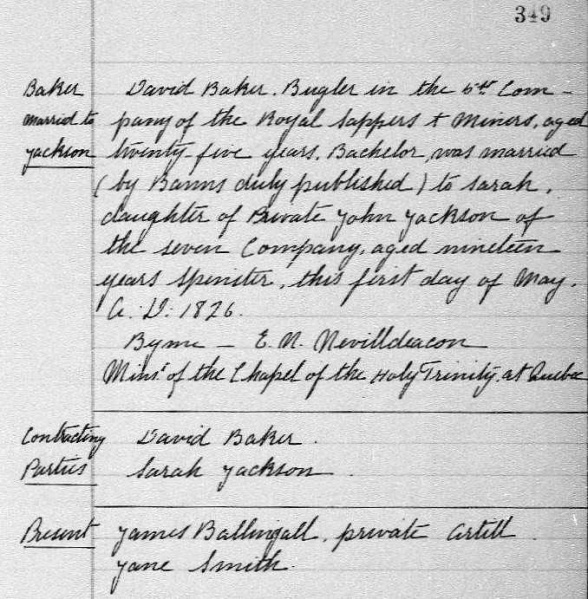 349
Baker David Baker. Bugler in the 5th Com-
married to pany of the Royal Sappers & Miners, aged
Jackson twenty-five years, Bachelor, was married
(by Banns duly published) to Sarah,
daughter of Private John Jackson of
the seven Company, aged nineteen
years Spinster, this first day of May.
A. D. 1826.
By me — E. N. Nevilldeacon
Mins. of the Chapel of the Holy Trinity at Quebec
Contracting David Baker.
Parties Sarah Jackson
Present James Ballingall, private Artill.
Jane Smith.